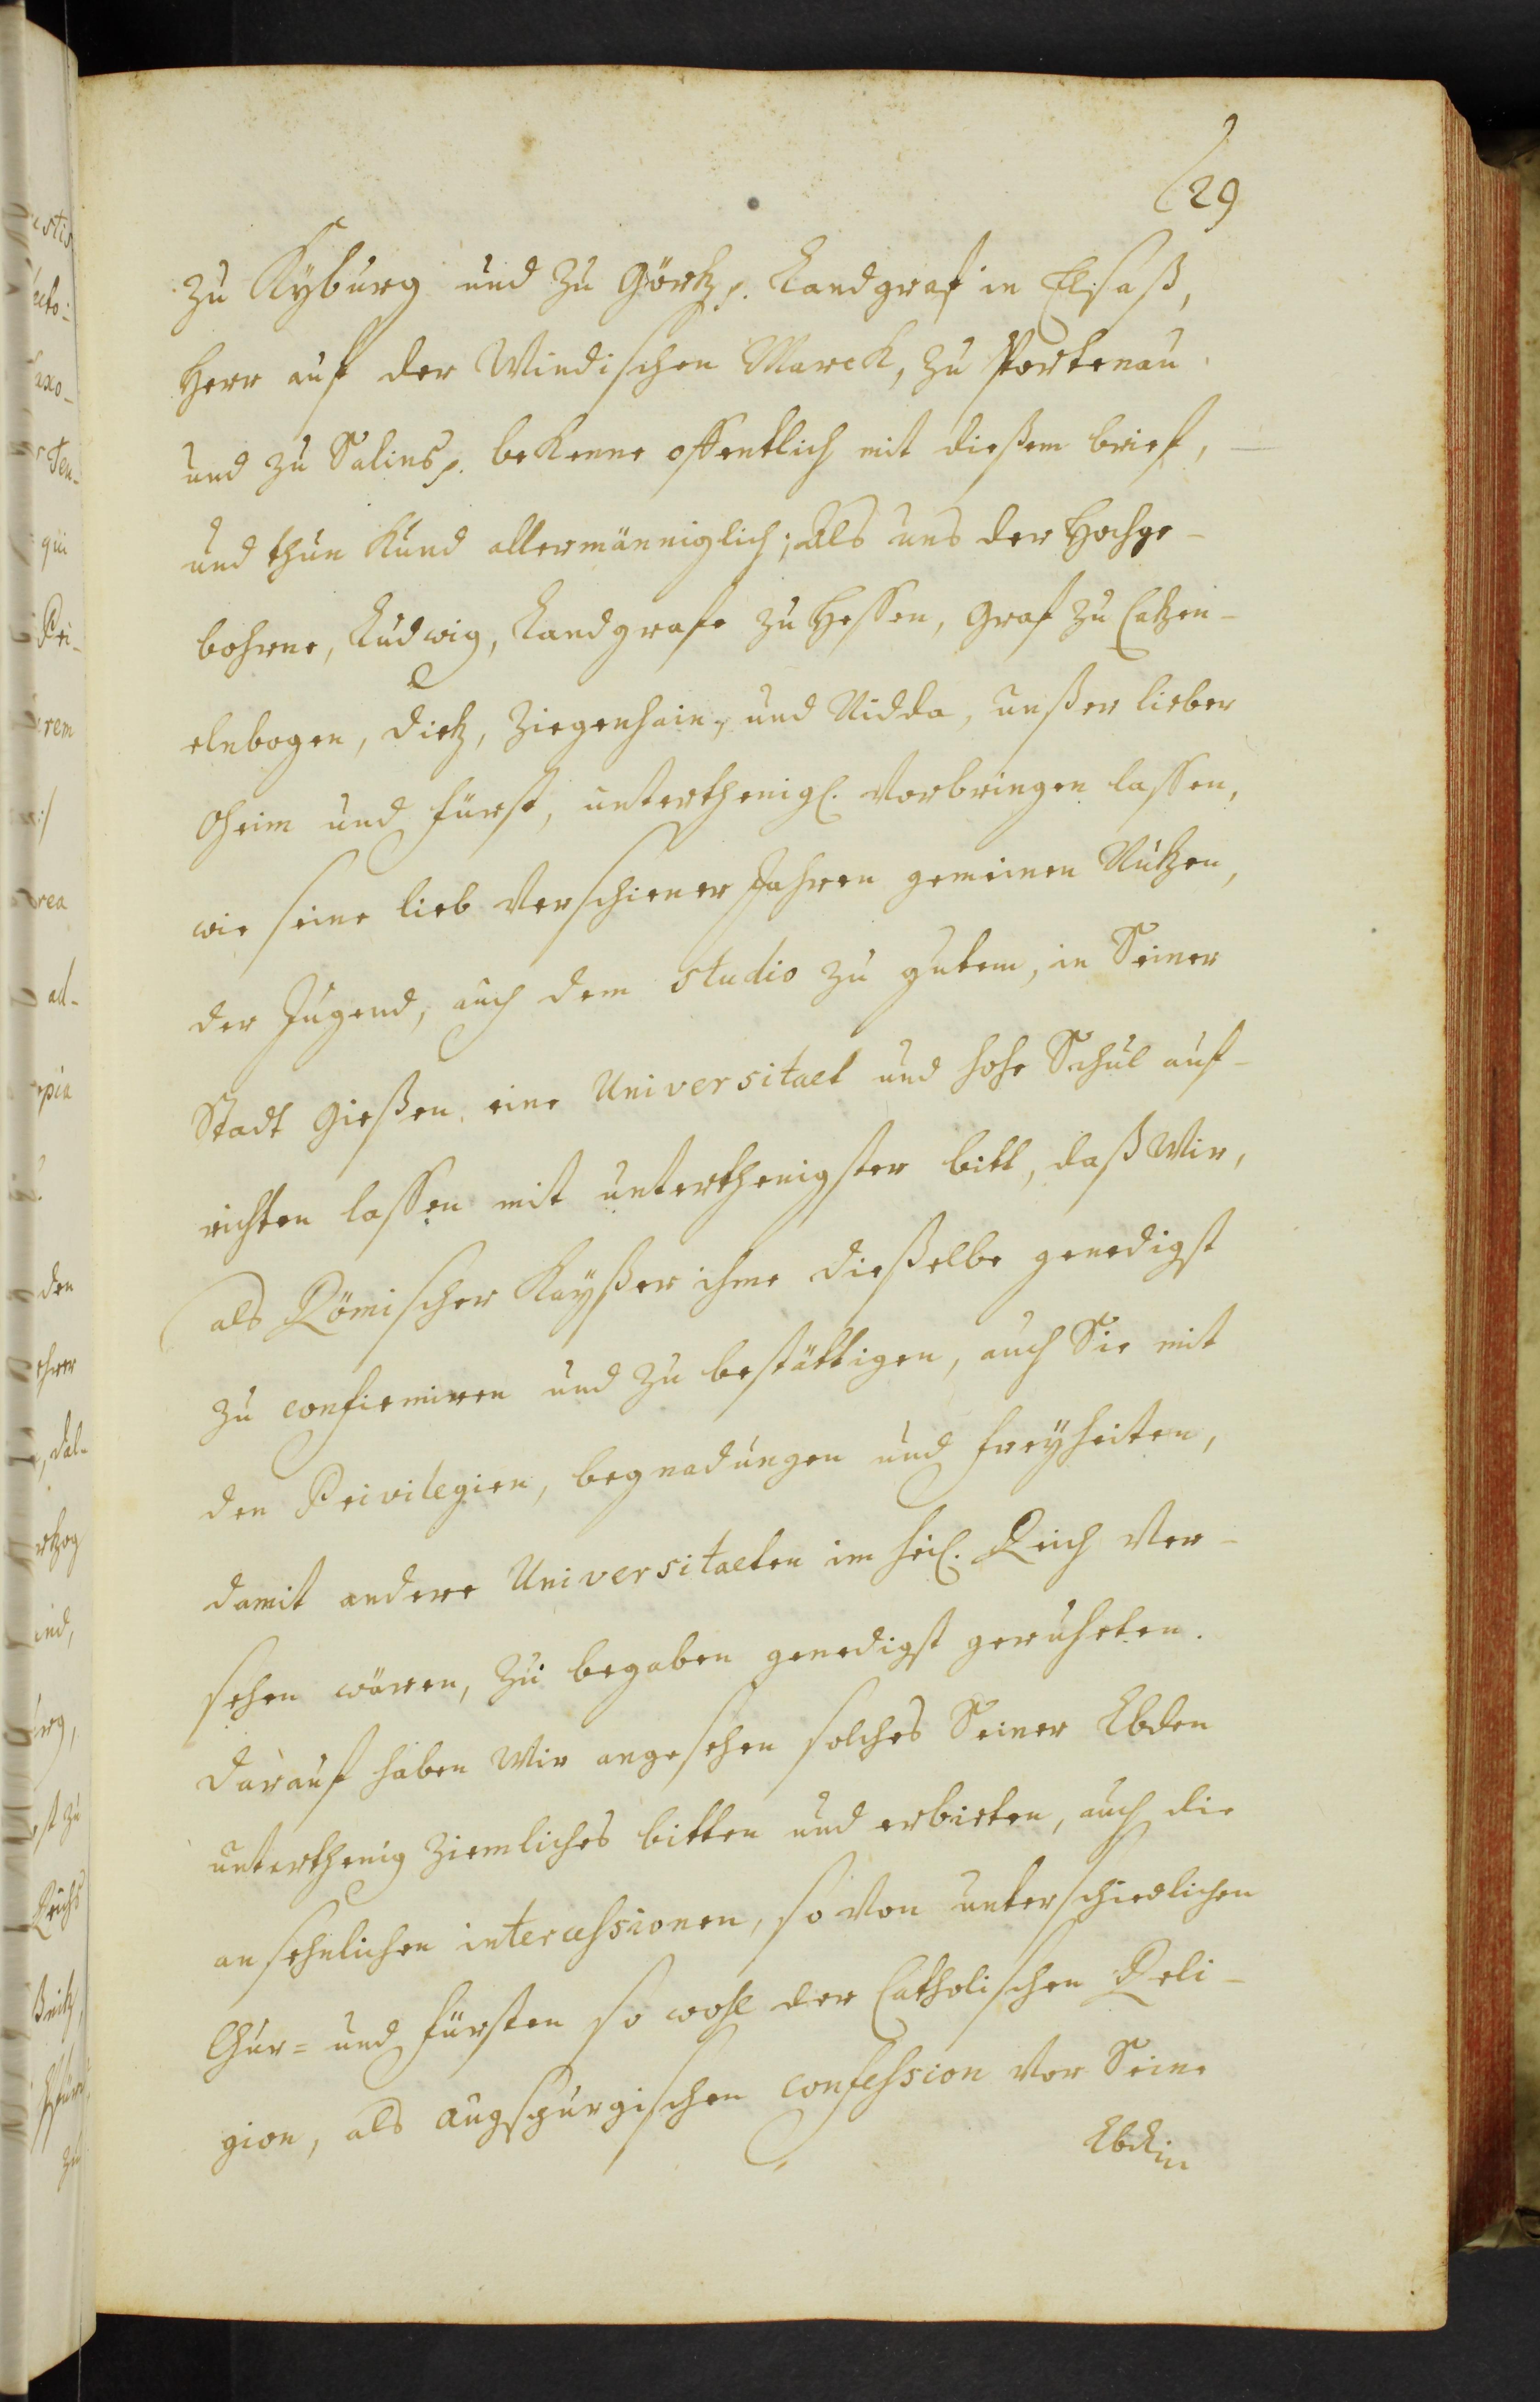 29
zu Kyburg und zu Görtz p. Landgraf in Elsaß,
Herr auf der Windischen Marck, zu Portenau
und zu Salins p. bekenne offentlich mit dießem brief,
und thun Kund allermänniglich; Als uns der Hochge-
bohrne, Ludwig, Landgrafe zu Hessen, Graf zu Catzen-
elnbogen, Dietz, Ziegenhain, und Nidda, unßer lieber
Oheim und Fürst, unterthenigl. Vorbringen lassen,
wie seine lieb Verschiener Jahren gemeinen Nutzen,
der Jugend, auch dem studio zu gutem, in Seiner
Stadt Gießen, eine Universitaet und hohe Schul auf-
richten lassen mit unterthenigster bitt, daß Wir,
als Römischer Kayßer ihme dießelbe genedigst
zu confirmiren und zu bestättigen, auch Sie mit
den Privilegien, begnadungen und freyheiten,
damit andere Universitaeten im heil. Reich Ver-
sehen wären, zu begaben genedigst geruheten.
Darauf haben Wir angesehen solches Seiner Lbden
unterthenig ziemliches bitten und erbieten, auch die
ansehnlichen intercessionen, so Von unterschiedlichen
Chur= und Fürsten so wohl der Catholischen Reli-
gion, als Augspurgischen Confession Vor Seine
Lbden